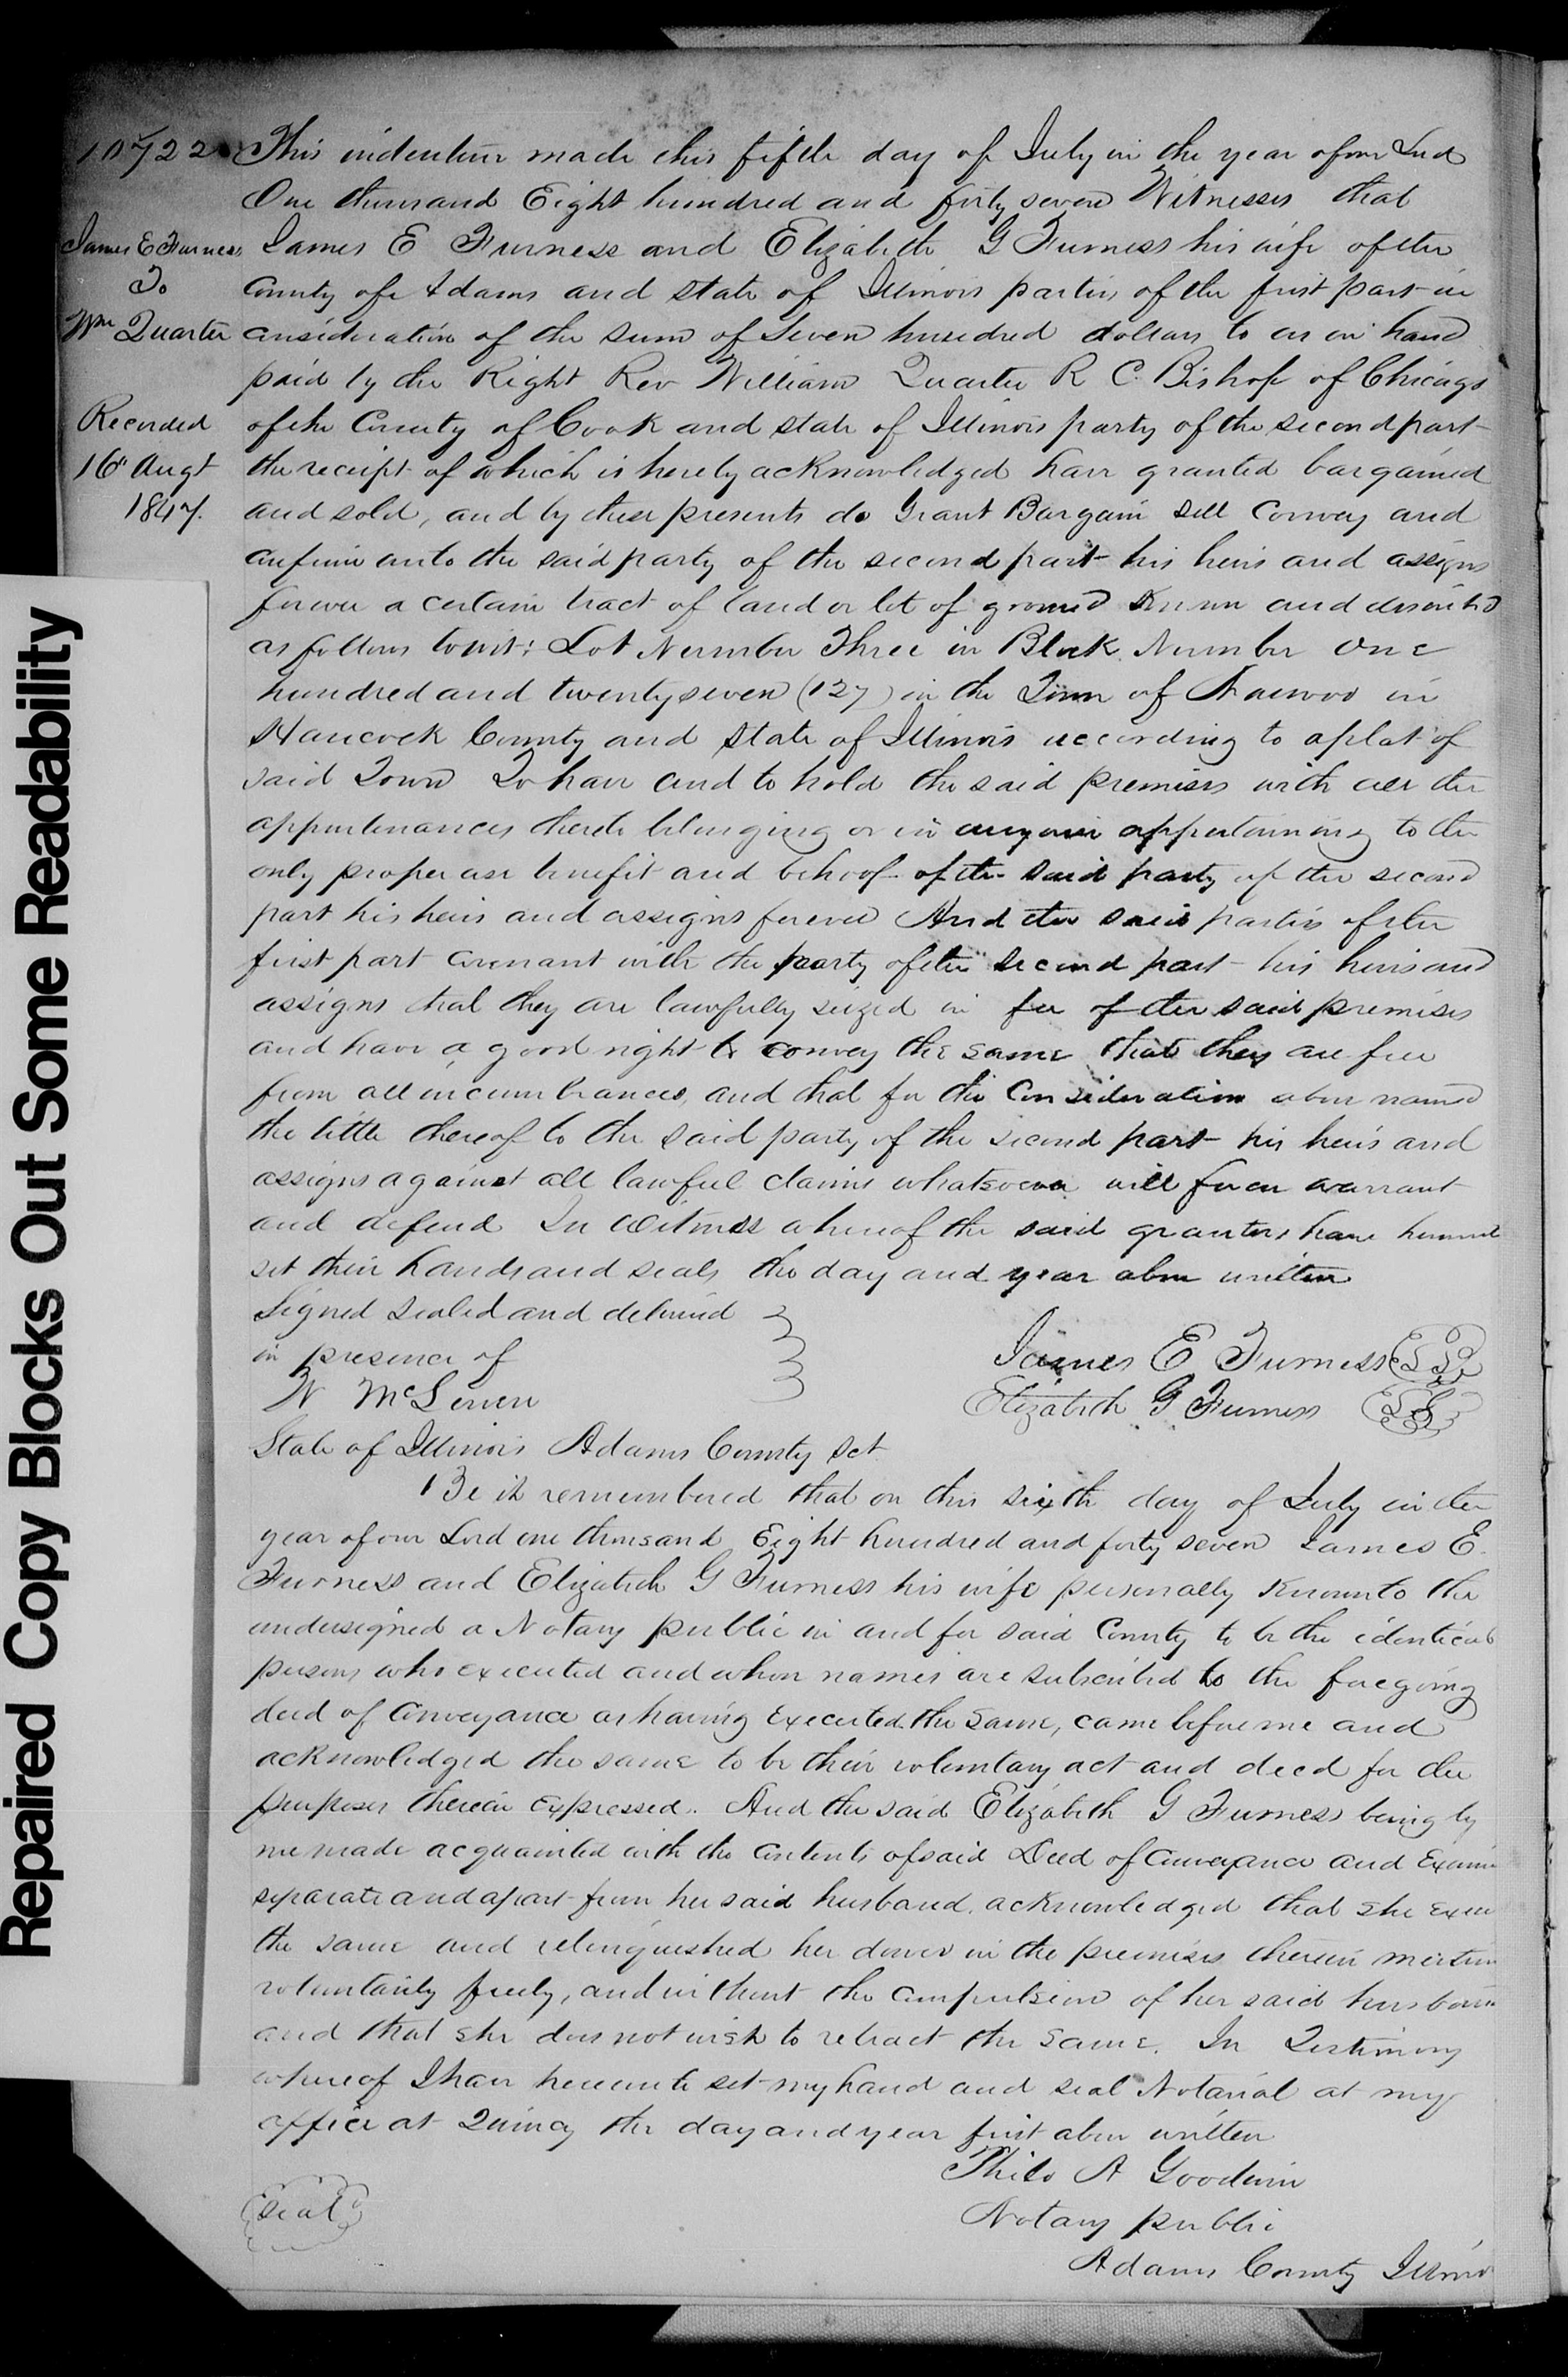 10722
James E Furness
To
Wm Quarter
Recorded
16" Augt
1847.
This indenture made this fifth day of July in the year of our Lord
One thousand Eight hundred and forty seven Witnesses that
James E Furness and Elizabeth G Furness his wife of the
County of Adams and state of Illinois parties of the first part in
consideration of the sum of Seven hundred dollars to us in hand
paid by the Right Rev William Quarter R C. Bishop of Chicago
of the County of Cook and state of Illinois party of the second part
the receipt of which is hereby acknowledged have granted bargained
and sold, and by these presents do Grant Bargain Sell Convey and
confirm unto the said party of the second part his heirs and assigns
forever a certain tract of land or lot of ground Known and described
as follows towit: Lot Number Three in Block Number One
hundred and twenty seven (127) in the Town of Nauvoo in
Hancock County and State of Illinois according to a plat of
said Town To have and to hold the said premises with all the
appurtenances thereto belonging or in anywise appertaining to the
only proper use benefit and behoof of the said party of the second
part his heirs and assigns forever And the said parties of the
first part covenant with the party of the second part his heirs and
assigns that they are lawfully seized in fee of the said premises
and have a good right to convey the same that they are free
from all incumbrances, and that for the Consideration above named
the title thereof to the said party of the second part his heirs and
assigns against all lawful claims whatsoever will forever warrant
and defend In Witness whereof the said grantors have hereunto
set their hands and seals the day and year above written
Signed sealed and delivered
in presence of
James E Furness
Elizabeth G Furness
State of Illinois Adams County Sct
Be it remembered that on this sixth day of July in the
year of our Lord one thousand Eight hundred and forty seven James E.
Furness and Elizabeth G Furness his wife personally Known to the
undersigned a Notary public in and for said County to be the identical
persons who executed and whose names are subscribed to the foregoing
deed of Conveyance as having Executed the Same, came before me and
acknowledged the same to be their voluntary act and deed for the
purposes therein Expressed. And the said Elizabeth G Furness being by
me made acquainted with the contents of said Deed of Conveyance and Examin
separate and apart from her said husband, acknowledged that she Exec
the same and relinquished her dower in the premises therein mention
voluntarily freely, and without the compulsion of her said husband
and that she does not wish to retract the Same. In Testimony
whereof I have hereunto set my hand and seal Notarial at my
office at Quincy the day and year first above written
Philo A Goodwin
Notary public
Adams County Illinois
Seal
Repaired Copy Blocks Out Some Readability